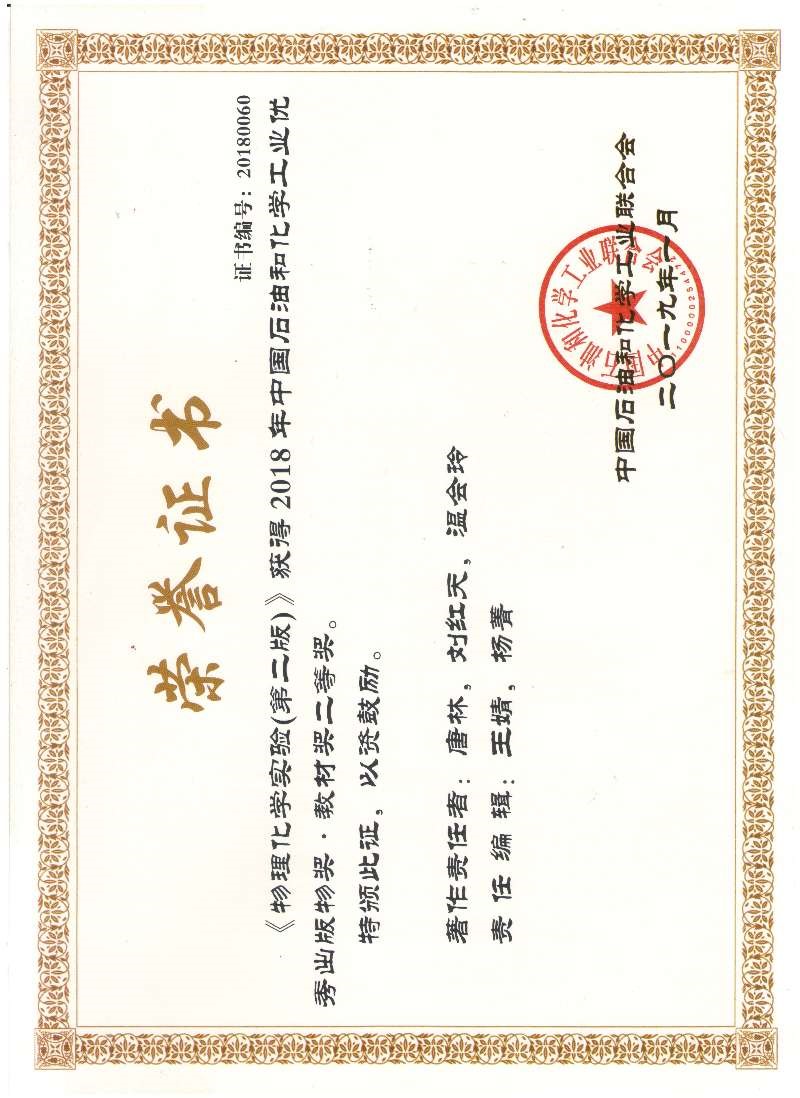 荣誉证书
证书编号：20180060
《物理化学实验(第二版)》获得2018年中国石油和化学工业优
秀出版物奖·教材奖二等奖。
特颁此证，以资鼓励。
著作责任者：唐林，刘红天，温会玲
责任编辑：王婧，杨菁
中国石油和化学工业联合会
二〇一九年一月
中国石油和化学工业联合会